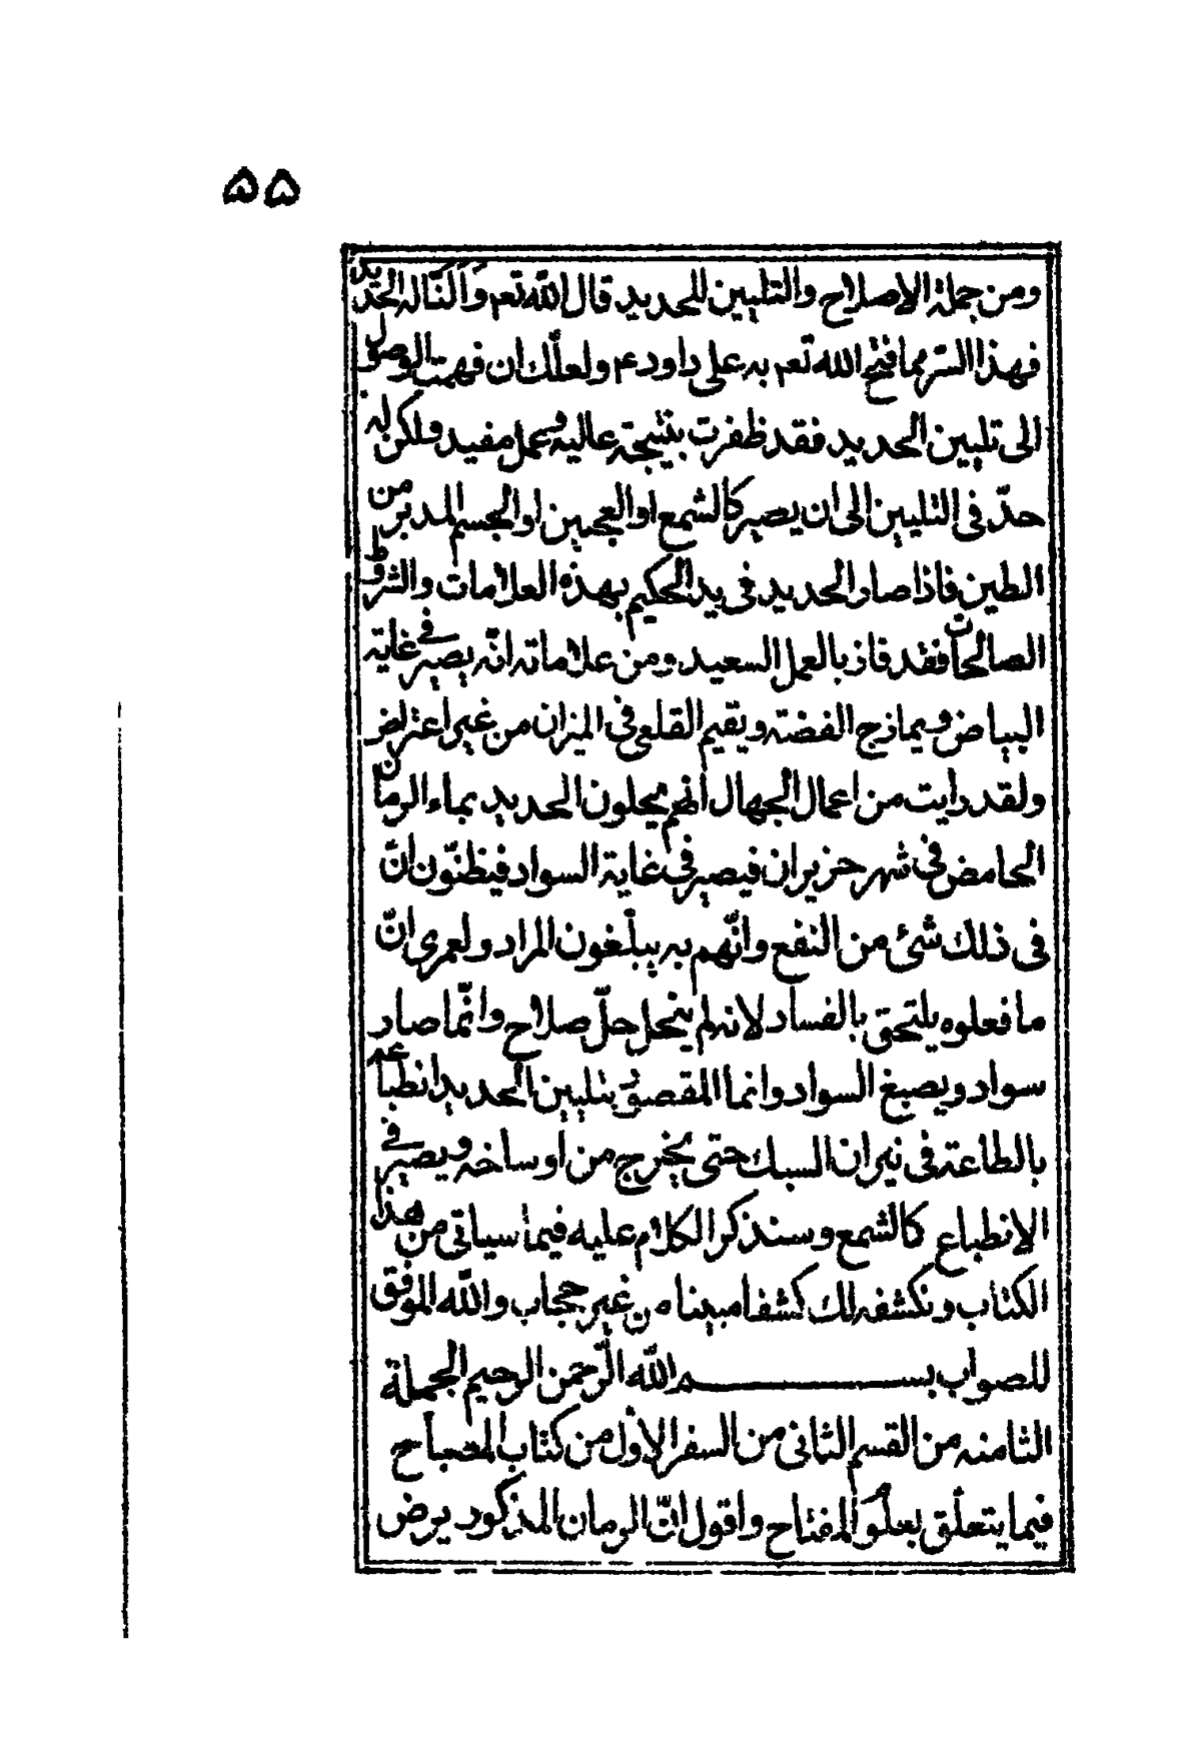 ۵۵
ومن جملة الاصلاح والتليين للحديد قال الله تعم وَاَلَنّا له الحديد
فهذا السّر مما فتح الله تعم به على داود عم ولعلّك ان فهمت الوصول
الى تليين الحديد فقد ظفرت بنتيجة عاليه وعمل مفيد ولكن له
حدّ فى التليين الى ان يصير كالشمع او العجين او الجسم المدبر من
الطين فاذا صار الحديد فى يد الحكيم بهذه العلامات والشروط
الصالحات فقد فاز بالعمل السعيد ومن علاماته انّه يصير فى غاية
البياض ويمازج الفضة ويقيم القلعى فى الميزان من غير اعتراض
ولقد رايت من اعمال الجهال انهم يحلون الحديد بماء الرمان
الحامض فى شهر حزيران فيصير فى غاية السواد فيظنّون انّ
فى ذلك شئ من النفع وانّهم به يبلّغون المراد ولعمرى انّ
ما فعلوه يلتحق بالفساد لانه لم ينحل حلّ صلاح وانّما صار
سواد ويصبغ السواد وانما المقصود بتليين الحديد انطباعه
بالطاعة فى نيران السبك حتى يخرج من اوساخه ويصير فى
الانطباع كالشمع وسنذكر الكلام عليه فيما سياتى من هذا
الكتاب ونكشفه لك كشفا مبينا من غير حجاب والله الموفق
للصواب بســـــم الله الرّحمن الرحيم الجملة
الثامنه من القسم الثانى من السفر الاول من كتاب المصباح
فيما يتعلّق بعلوم المفتاح واقول انّ الرمان المذكور يرض